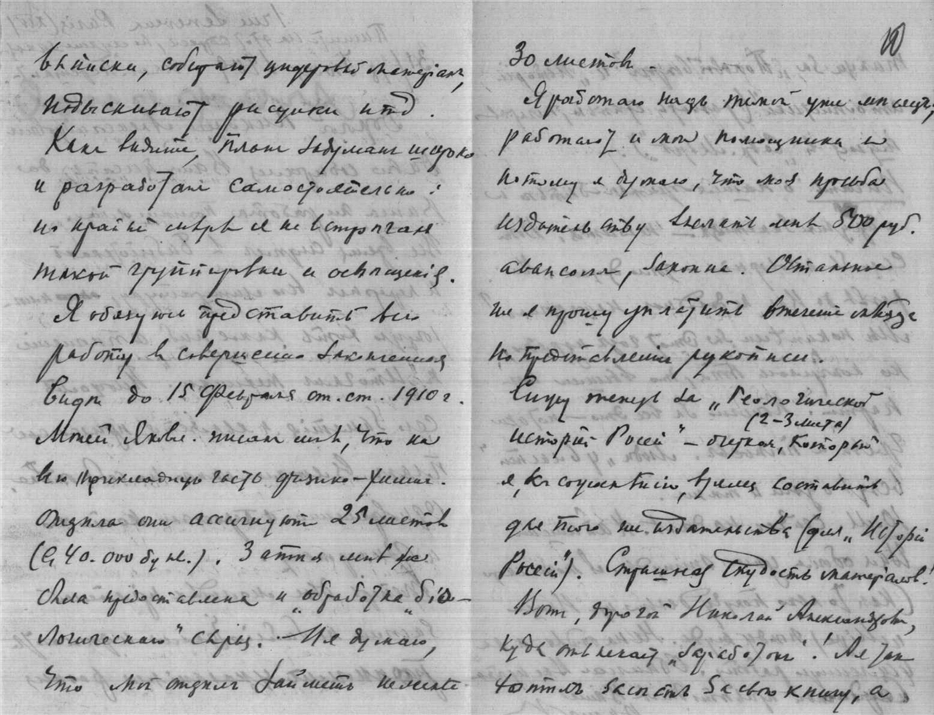 выписки, собирают цифровый матерiалъ,
подыскивают рисунки и тд.
Какъ видите, планъ задуманъ широко
и разработан самостоятельно:
по крайней мѣрѣ я не встрѣчалъ
такой группировки и освѣщенiя.
Я обязуюсь представить всю
работу в совершенно законченном
видѣ до 15 Февраля ст. ст. 1910 г.
Моисей Яковл. писал мнѣ, что на
всю прикладную часть физико-химич.
отдѣла они ассигнуют 25 листов
(в 40.000 букв.). Затѣм мнѣ же
была предоставлена и обработка „бiо-
логическаго" сырья. И я думаю,
что мой отдѣлъ займетъ не менѣе
10
30 листовъ.
Я работаю надъ темой уже мѣсяцъ,
работают и мои помощники и
потому я думаю, что моя просьба
издательству выслать мнѣ 500 руб.
авансом, законна. Остальное
же я прошу уплатить в теченiе мѣсяца
по представленiи рукописи.
Сижу теперь за „Геологической
(2-3 листа)
исторiей Россiи" – очеркъ, который
я, къ сожалѣнiю, взялся составить
для того же издательства (для „Исторiи
Россiи"). Страшная скудость матерiалов!
Вот, дорогой Николай Александров.,
куда отвлекает „заработокъ"! А я так
хотѣлъ засѣсть за свою книгу, а